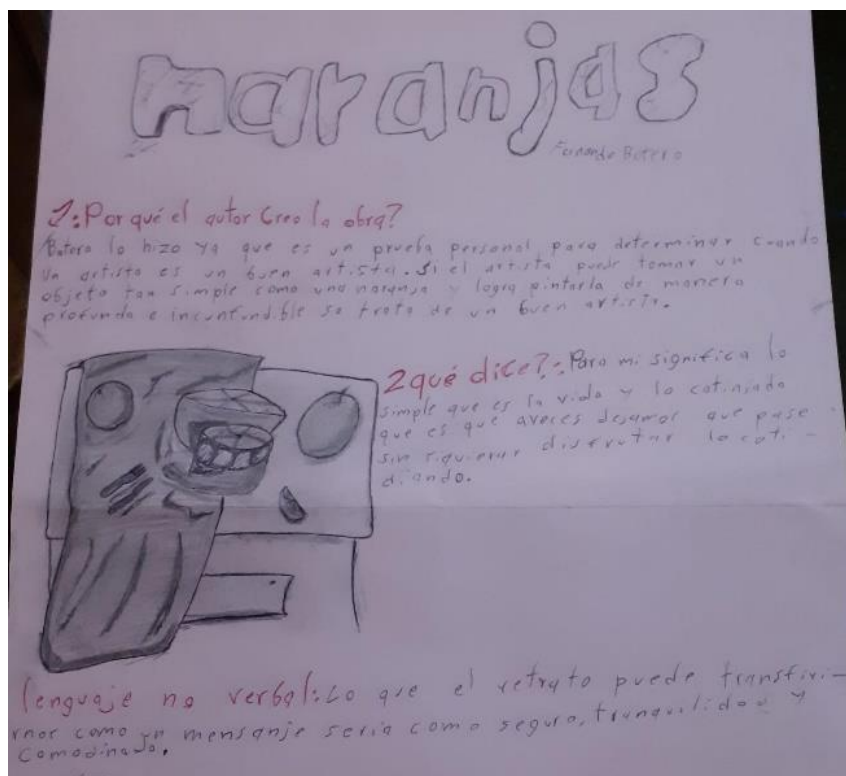 naranjas
Fernando Botero
1: Por qué el autor Creo la obra?
Botero lo hizo ya que es un prueba personal para determinar cuando
un artista es un buen artista. Si el artista puede tomar un
objeto tan simple como una naranja y logra pintarla de manera
profunda e inconfundible se trata de un buen artista.
2 qué dice?: Para mi significa lo
simple que es la vida y lo cotiniado
que es que aveces dejamos que pase
sin siquierar disfrutar lo coti-
diando.
lenguaje no verbal: Lo que el retrato puede transfiri-
rnos como un mensanje seria como seguro, tranquilidad y
comodinado.